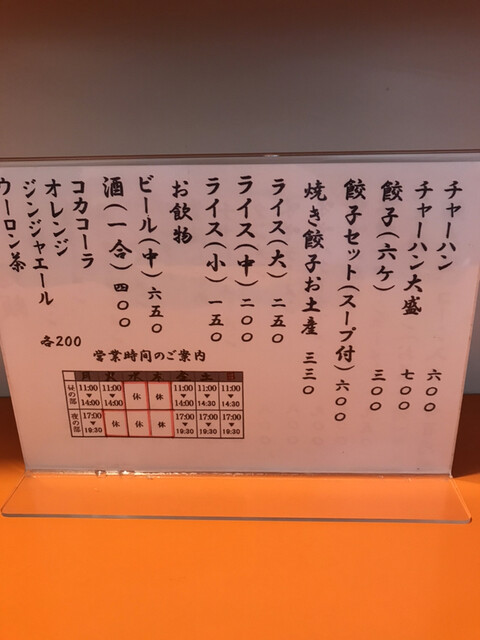 チャーハン 六〇〇
チャーハン大盛 七〇〇
餃子(六ケ) 三〇〇
餃子セット(スープ付) 六〇〇
焼き餃子お土産 三三〇
ライス(大) 二五〇
ライス(中) 二〇〇
ライス(小) 一五〇
お飲物
ビール(中) 六五〇
酒(一合) 四〇〇
コカコーラ
オレンジ
ジンジャエール
ウーロン茶
各200
営業時間のご案内
月 火 水 木 金 土 日
昼の部 11:00▼14:00 11:00▼14:00 休 休 11:00▼14:00 11:00▼14:30 11:00▼14:30
夜の部 17:00▼19:30 休 休 休 17:00▼19:30 17:00▼19:30 17:00▼19:30